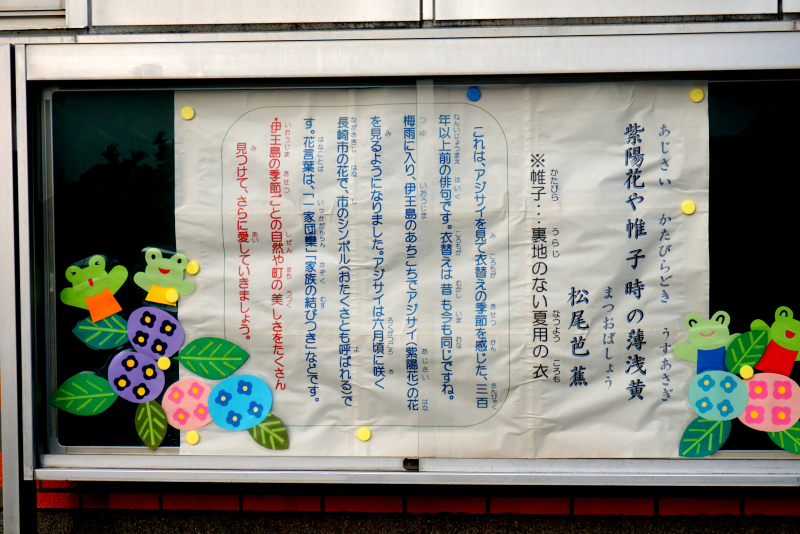 紫陽花や帷子時の薄浅黄
あじさい かたびらどき うすあさぎ
松尾芭蕉
まつおばしょう
※帷子・・・裏地のない夏用の衣
かたびら うらじ なつよう ころも
これは、アジサイを見て衣替えの季節を感じた、三百
年以上前の俳句です。衣替えは昔も今も同じですね。
梅雨に入り、伊王島のあちこちでアジサイ(紫陽花)の花
を見るようになりました。アジサイは六月頃に咲く
長崎市の花で、市のシンボル(おたくさとも呼ばれる)で
す。花言葉は、「一家団欒」「家族の結びつき」などです。
・伊王島の季節ごとの自然や町の美しさをたくさん
見つけて、さらに愛していきましょう。